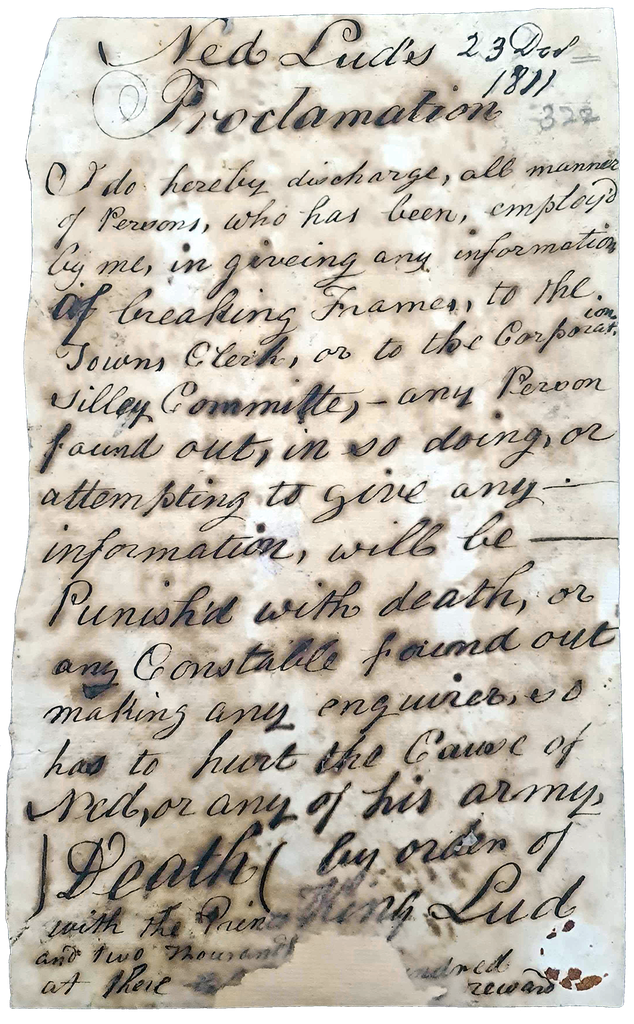 Ned Lud's 23 Dec
1811
Proclamation
322
I do hereby discharge, all manner
of Persons, who has been, employ'd
by me, in giveing any information
of breaking Frames, to the
Towns Clerk, or to the Corporation
Silley Committe, – any Person
found out, in so doing, or
attempting to give any —
information, will be —
Punish'd with death, or
any Constable found out
making any enquiries, so
has to hurt the Cause of
Ned, or any of his army,
)Death( by order of
King Lud
with the Prin
and two Thousand
at there ndred
reward